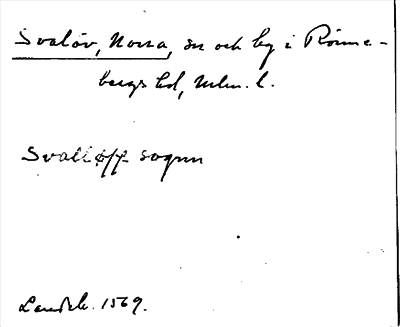 Svalöv, Norra, sn och by i Rönne-
bergs hd, Mlm. l.
Svalløff sognn
Landsb. 1569.